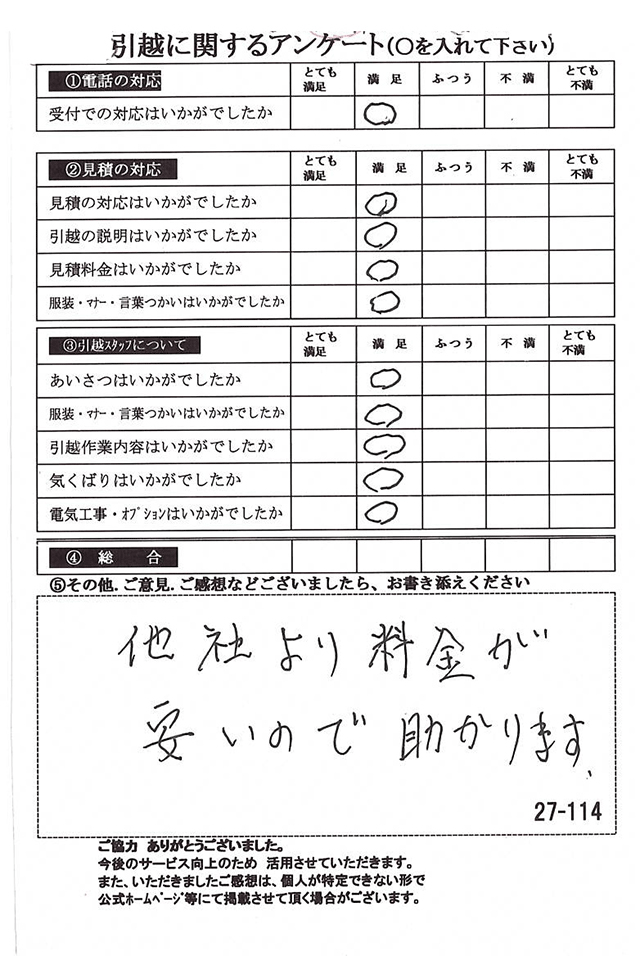 引越に関するアンケート(○を入れて下さい)
①電話の対応 とても満足 満足 ふつう 不満 とても不満
受付での対応はいかがでしたか
②見積の対応 とても満足 満足 ふつう 不満 とても不満
見積の対応はいかがでしたか
引越の説明はいかがでしたか
見積料金はいかがでしたか
服装・マナー・言葉つかいはいかがでしたか
③引越スタッフについて とても満足 満足 ふつう 不満 とても不満
あいさつはいかがでしたか
服装・マナー・言葉つかいはいかがでしたか
引越作業内容はいかがでしたか
気くばりはいかがでしたか
電気工事・オプションはいかがでしたか
④ 総 合
⑤その他.ご意見.ご感想などございましたら、お書き添えください
他社より料金が
安いので助かります、
27-114
ご協力 ありがとうございました。
今後のサービス向上のため 活用させていただきます。
また、いただきましたご感想は、個人が特定できない形で
公式ホームページ等にて掲載させて頂く場合がございます。